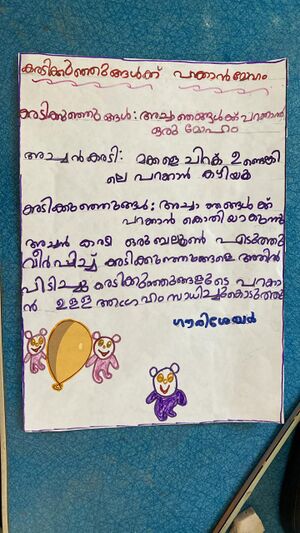 കരടിക്കുഞ്ഞുങ്ങൾക്ക് പറക്കാൻ മോഹം
കരടിക്കുഞ്ഞുങ്ങൾ: അച്ഛാ ഞങ്ങൾക്ക് പറക്കാൻ
ഒരു മോഹം
അച്ഛൻകരടി: മക്കളെ ചിറക് ഉണ്ടെങ്കി
ലെ പറക്കാൻ കഴിയുക
കരടിക്കുഞ്ഞുങ്ങൾ: അച്ഛാ ഞങ്ങൾ ക്ക്
പറക്കാൻ കൊതിയാകുന്നു
അച്ഛൻ കരടി ഒരു ബലൂൺ എടുത്തു
വീർപ്പിച്ച് കരടിക്കുഞ്ഞുങ്ങളെ അതിൽ
പിടിച്ചു കരടിക്കുഞ്ഞുങ്ങളുടെ പറക്കാ
ൻ ഉള്ള ആഗ്രഹം സാധിച്ചുകൊടുത്തു
ഗൗരിശേഖർ